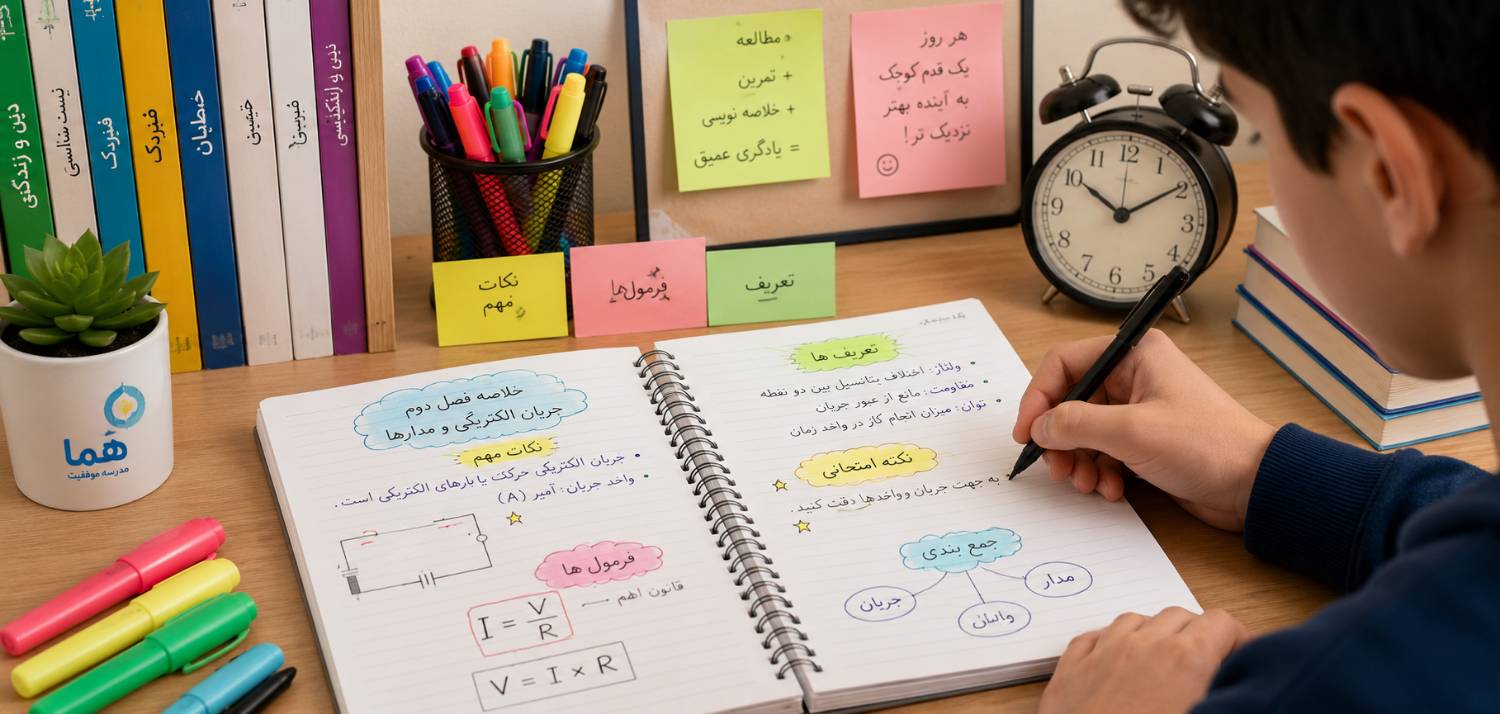 دین و زندگی
مطالعه
+ تمرین
+ خلاصه نویسی
= یادگری عمیق
هر روز
یک قدم کوچک
به آینده بهتر
نزدیک تر!
12
1
2
3
4
5
6
7
8
9
10
11
نکات
مهم
فرمول‌ها
تعریف
هما
مدرسه موفقیت
خلاصه فصل دوم
جریان الکتریکی و مدارها
نکات مهم
• جریان الکتریکی حرکت یا بارهای الکتریکی است.
• واحد جریان: آمپر (A)
فرمول ها
قانون اهم
I = V/R
V = I × R
تعریف ها
• ولتاژ: اختلاف پتانسیل بین دو نقطه
• مقاومت: مانع از عبور جریان
• توان: میزان انجام کار در واحد زمان
نکته امتحانی
به جهت جریان و واحدها دقت کنید.
جمع بندی
مدار
جریان